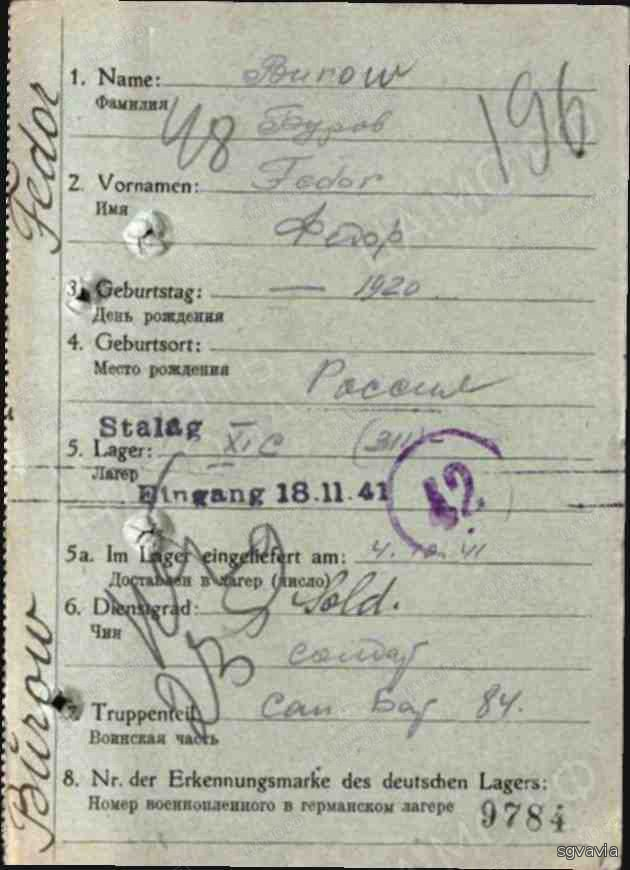 1. Name: Burow
Фамилия
48 Буров
196
2. Vornamen: Fedor
Имя
Федор
3. Geburtstag: — 1920
День рождения
4. Geburtsort:
Место рождения
Россия
Stalag
5. Lager: XI C (311)
Лагерь
Eingang 18.11.41
42
5а. Im Lager eingeliefert am: 4. 10. 41
Доставлен в лагерь (число)
6. Dienstgrad: Sold.
Чин
солдат
7. Truppenteil: Сан Бат 84.
Воинская часть
8. Nr. der Erkennungsmarke des deutschen Lagers:
Номер военнопленного в германском лагере 9784
Burow Fedor
sgvavia